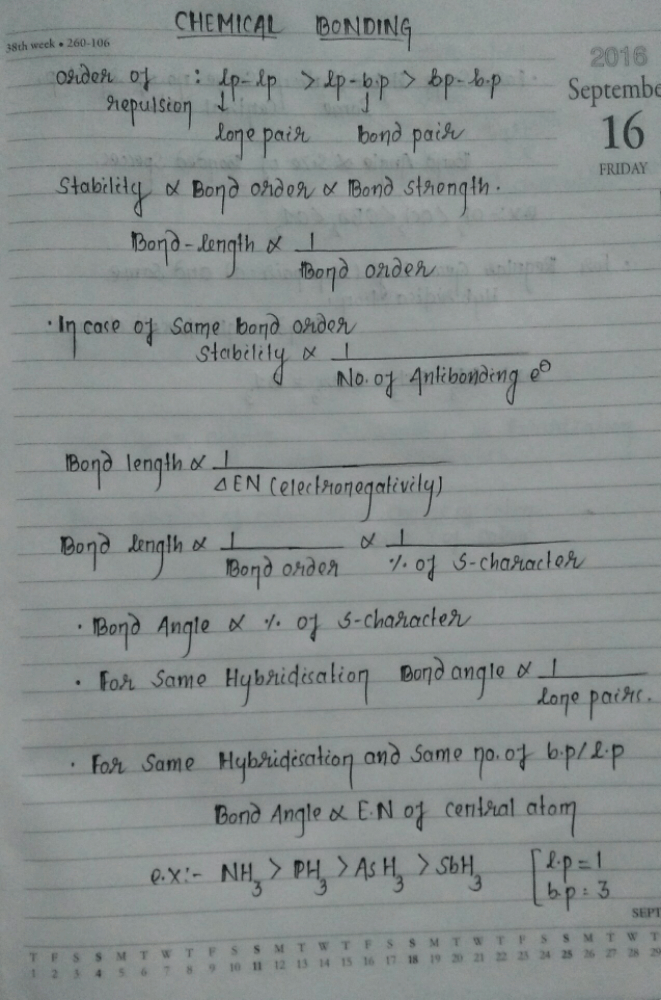 CHEMICAL BONDING
38th week • 260-106
2016
Septembe
16
FRIDAY
order of repulsion : lp-lp > lp-b.p > bp-b.p
↓ ↓
lone pair bond pair
Stability ∝ Bond order ∝ Bond strength.
Bond-length ∝ 1 / Bond order
· In case of same bond order
Stability ∝ 1 / No. of Antibonding e⊖
Bond length ∝ 1 / ΔEN (electronegativily)
Bond length ∝ 1 / Bond order ∝ 1 / % of S-character
· Bond Angle ∝ % of S-character
· For Same Hybridisation Bond angle ∝ 1 / lone pairs.
· For Same Hybridisation and same no. of b.p/l.p
Bond Angle ∝ E.N of central atom
e.x:- NH3 > PH3 > AsH3 > SbH3 [l.p = 1
b.p = 3
SEPT
T F S S M T W T F S S M T W T F S S M T W T F S S M T W T
1 2 3 4 5 6 7 8 9 10 11 12 13 14 15 16 17 18 19 20 21 22 23 24 25 26 27 28 29